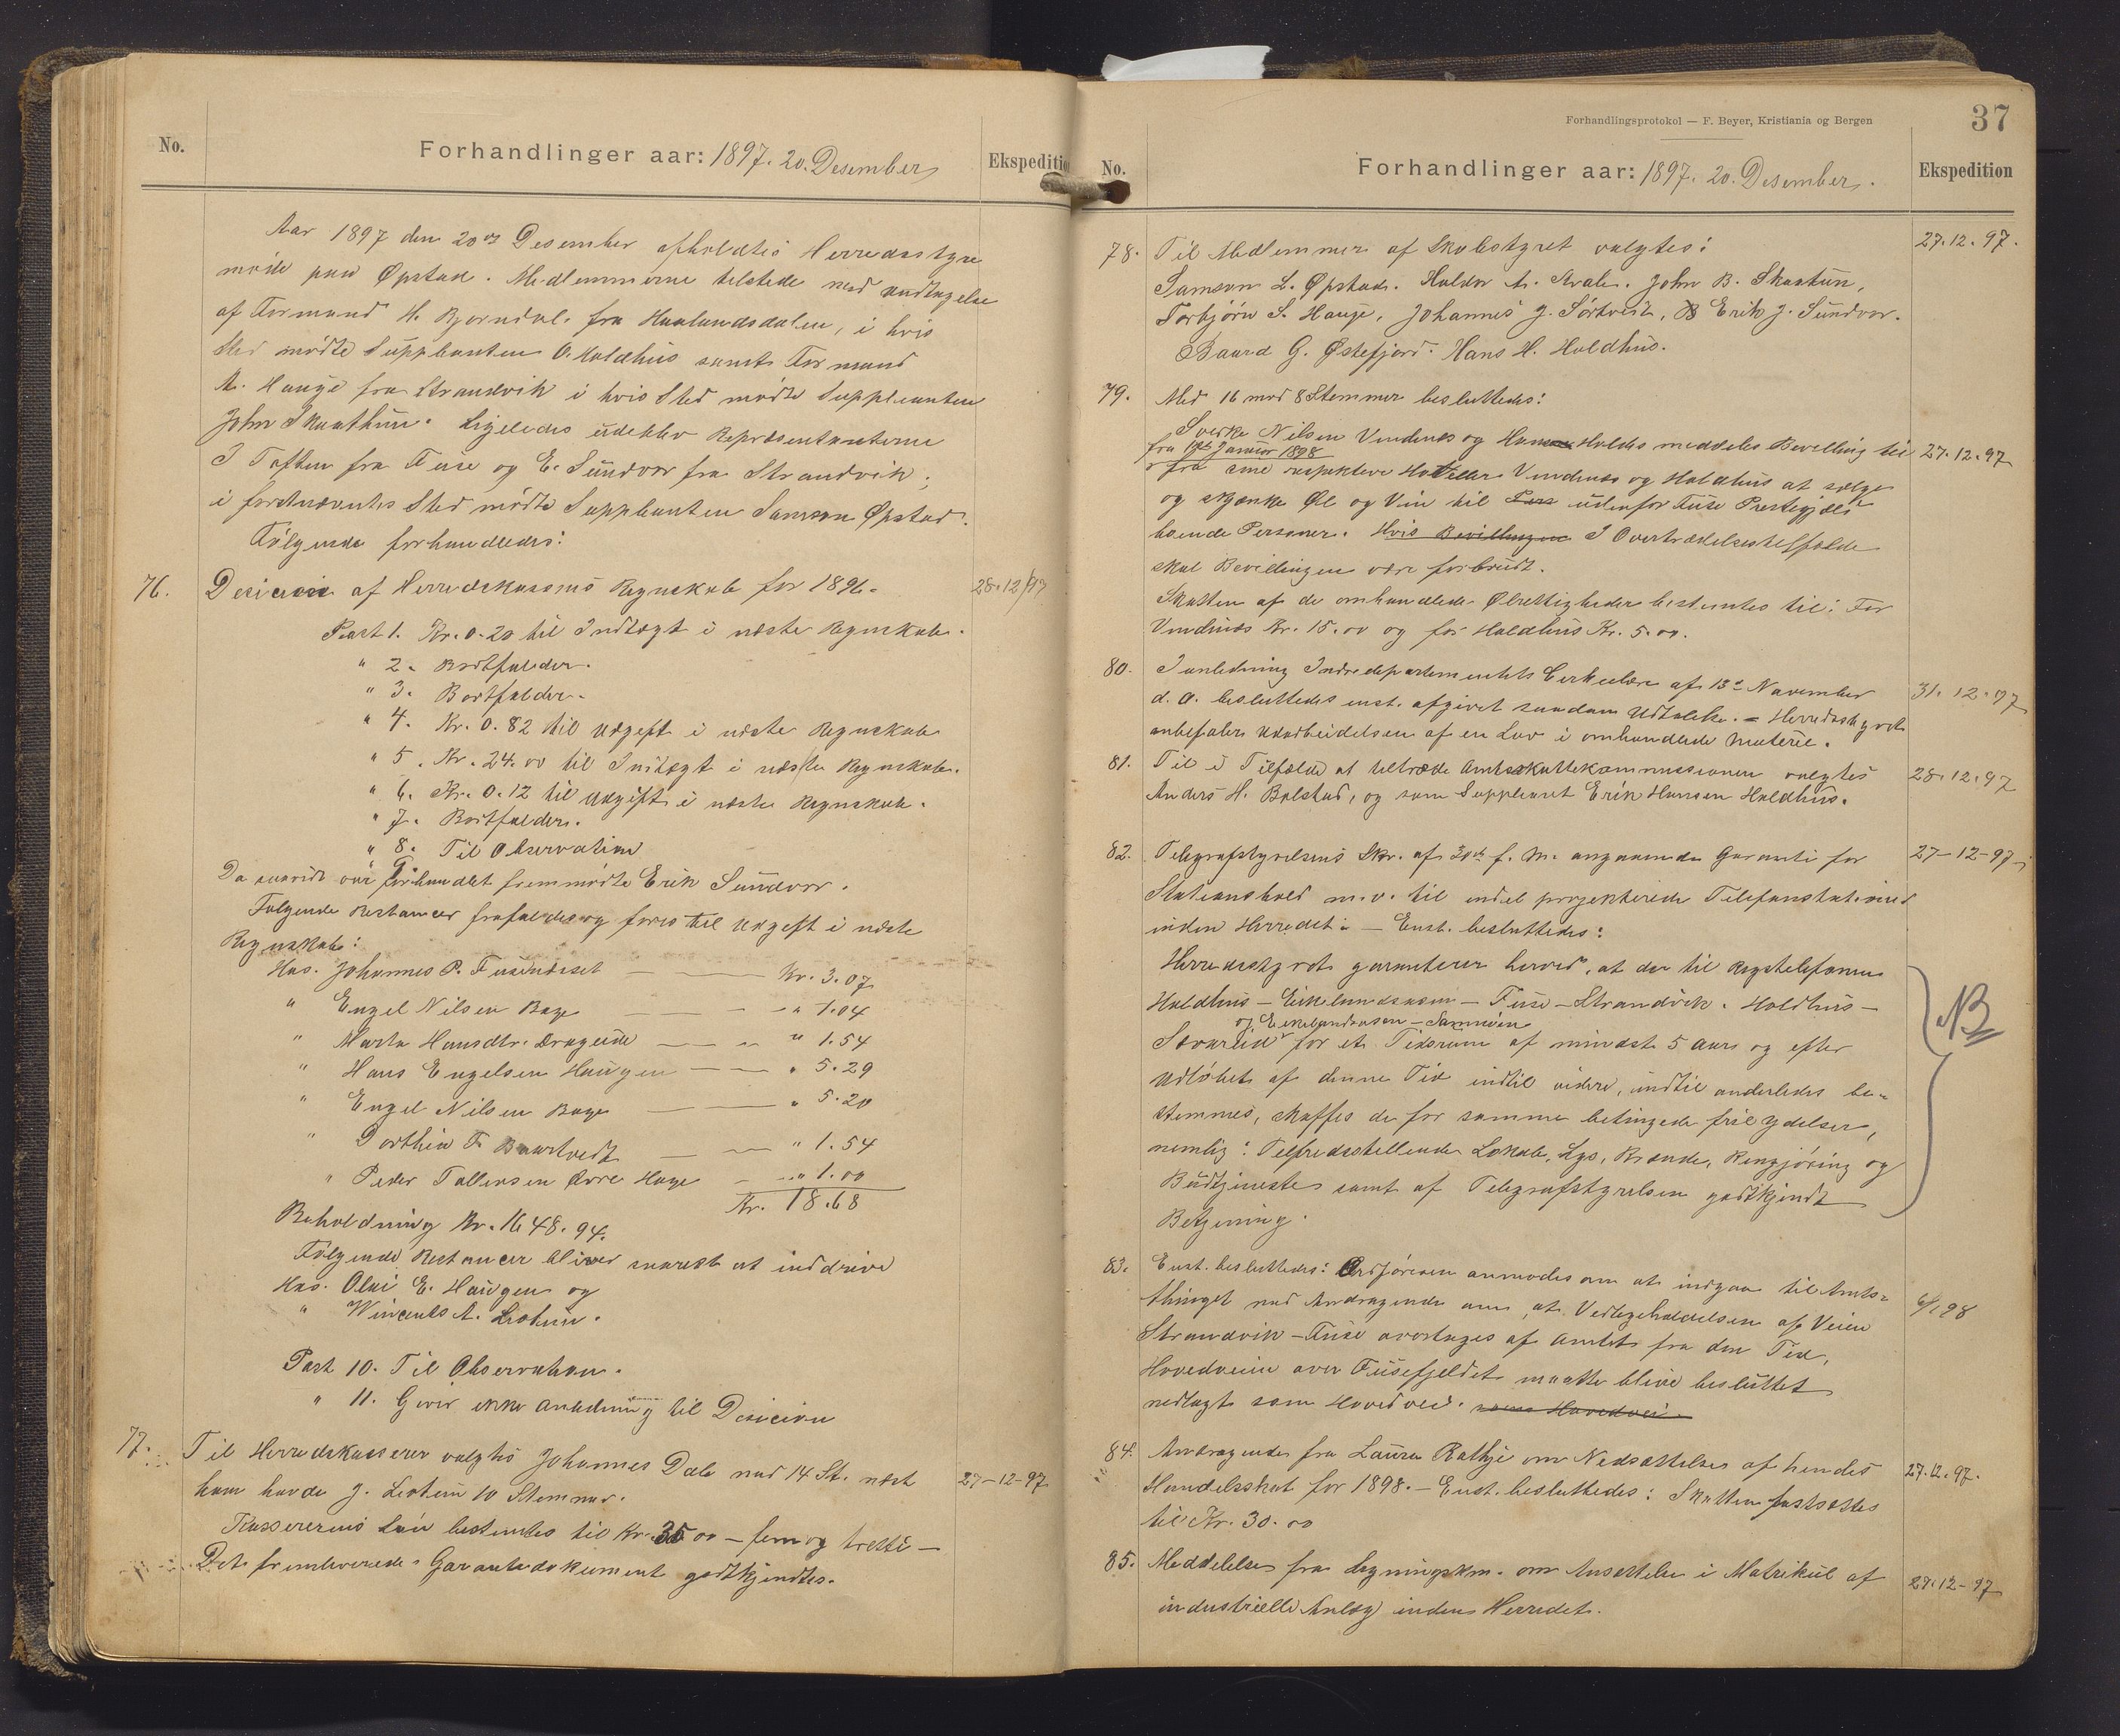 No.
Forhandlinger aar: 1897. 20. Desember
Ekspeditio
Aar 1897 den 20de Desember afholdtes Herredsstyre
møde paa Øpstad. Medlemmerne tilstede med undtagelse
af Formand H. Bjorndal fra Haalandsdalen, i hvis
Sted mødte Supplianten O. Holdhus samt Formand
A. Hauge fra Strandvik i hvis Sted mødte Supplianten
John Skaathun. Ligeledes udeblev Repræsentanterne
I Toften fra Fuse og E. Sundvor fra Strandvik;
i førstnævntes Sted mødte Supplianten Samson Øpstad.
Følgende forhandledes:
76. Desicion af Herredskassens Regnskab for 1896. 28.12/97
Post 1. Kr. 0.20 til Indtægt i næste Regnskab.
" 2. Bortfalder.
" 3. Bortfalder.
" 4. Kr. 0.82 til Udgift i næste Regnskab
" 5. Kr. 24.00 til Indtægt i næste Regnskab.
" 6. Kr. 0.12 til Udgift i næste Regnskab.
" 7. Bortfalder.
" 8. Til Observation
" 9.
Da saavidt var forhandlet fremmødte Erik Sundvor.
Følgende Restancer frafaldes og føres til Udgift i næste
Regnskab:
Hos. Johannes P. Fuseneset — — Kr. 3.07
" Engel Nilsen Bage — — " 1.04
" Marta Hansdtr. Drageide — — " 1.54
" Hans Engelsen Haugen — — " 5.29
" Engel Nilsen Bage — — " 5.20
" Dorthea F. — — " 1.54
" Peder Tollevsen Øvre Hage — " 1.00
Kr. 18.68
Beholdning Kr. 1648.94.
Følgende Restancer bliver snarest at inddrive
Hos. Olai E. Haugen og
" Wincents A. Liotun.
Post 10. Til Observation.
" 11. Giver ikke Anledning til Desicion
77. Til Herredskasserer valgtes Johannes Dale med 14 St. næst
ham havde J. Liotun 10 Stemmer. 27-12-97
Kassererens Løn bestemtes til Kr. 35.00 — fem og tretti —
Det fremleverede Garantidokument godtkjendtes.
Forhandlingsprotokol — F. Beyer, Kristiania og Bergen
37
No.
Forhandlinger aar: 1897. 20. Desember.
Ekspedition
78. Til Medlemmer af Skolestyret valgtes: 27.12.97.
Samson L. Øpstad. Haldor A. John B. Skaatun,
Torbjørn S. Hauge, Johannes J. Sørtveit, Erik J. Sundvor.
Baard G. Østefjord. Hans H. Holdhus.
79. Med 16 mod 8 Stemmer besluttedes:
Sverke Nilsen Vindenes og Holdhus meddeles Bevilling til 27.12.97
fra 1ste Januar 1898
fra sine respektive Hoteller Vindenes og Holdhus at sælge
og skjænke Øl og Vin til udenfor Fuse Prestegjæld
boende Personer. Hvis Bevillingen I Overtrædelsestilfælde
skal Bevillingen være forbrudt.
Skatten af de omhandlede Ølrettigheder bestemtes til: For
Vindenes Kr. 15.00 og for Holdhus Kr. 5.00.
80. I anledning Indredepartementets Cirkulære af 13de November 31.12.97
d. A. besluttedes enst. afgivet saadan Udtalelse. — Herredsstyret
anbefaler Udarbeidelsen af en Lov i omhandlede Materie.
81. Til i Tilfælde at tiltræde Amtsskattekommissionen valgtes 28.12.97
Anders H. Bolstad, og som Suppleant Erik Hansen Holdhus.
82. Telegrafstyrelsens Skr. af 30te f. M. angaaende Garanti for 27-12-97
Stationshold m.v. til endel projekterede Telefonstationer
inden Herredet. — Enst. besluttedes:
Herredsstyret garanterer herved, at der til Rigstelefonen
Holdhus — Eikelandsosen — Fuse — Strandvik. Holdhus —
og Eikelandsosen — Samnøen
Sævareid for et Tidsrum af mindst 5 Aar og efter
Udløbet af denne Tid indtil videre, indtil anderledes be-
stemmes, skaffes de for samme betingede frie Ydelser,
nemlig: Tilfredsstillende Lokale, Lys, Brænde, Rengjøring og
Budtjeneste samt af Telegrafstyrelsen godtkjendt
Betjening.
NB
83. Enst. besluttedes: Ordføreren anmodes om at indgaa til Amts-
thinget med Andragende om, at Vedligeholdelsen af Veien 6/1 98
Strandvik — Fuse overtages af Amtet fra den Tid,
Hovedveien over Fusefjeldet maatte blive besluttet
nedlagt som Hovedvei. som Hovedvei.
84. Andragende fra Laura Rathje om Nedsættelse af hendes 27.12.97.
Handelsskat for 1898. — Enst. besluttedes: Skatten fastsættes
til Kr. 30.00
85. Meddelelse fra Ligningskm. om Ansættelse i Matrikul af 27.12-97
industrielle Anlæg inden Herredet.